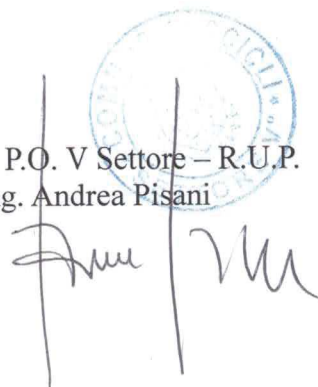 P.O. V Settore – R.U.P.
g. Andrea Pisani